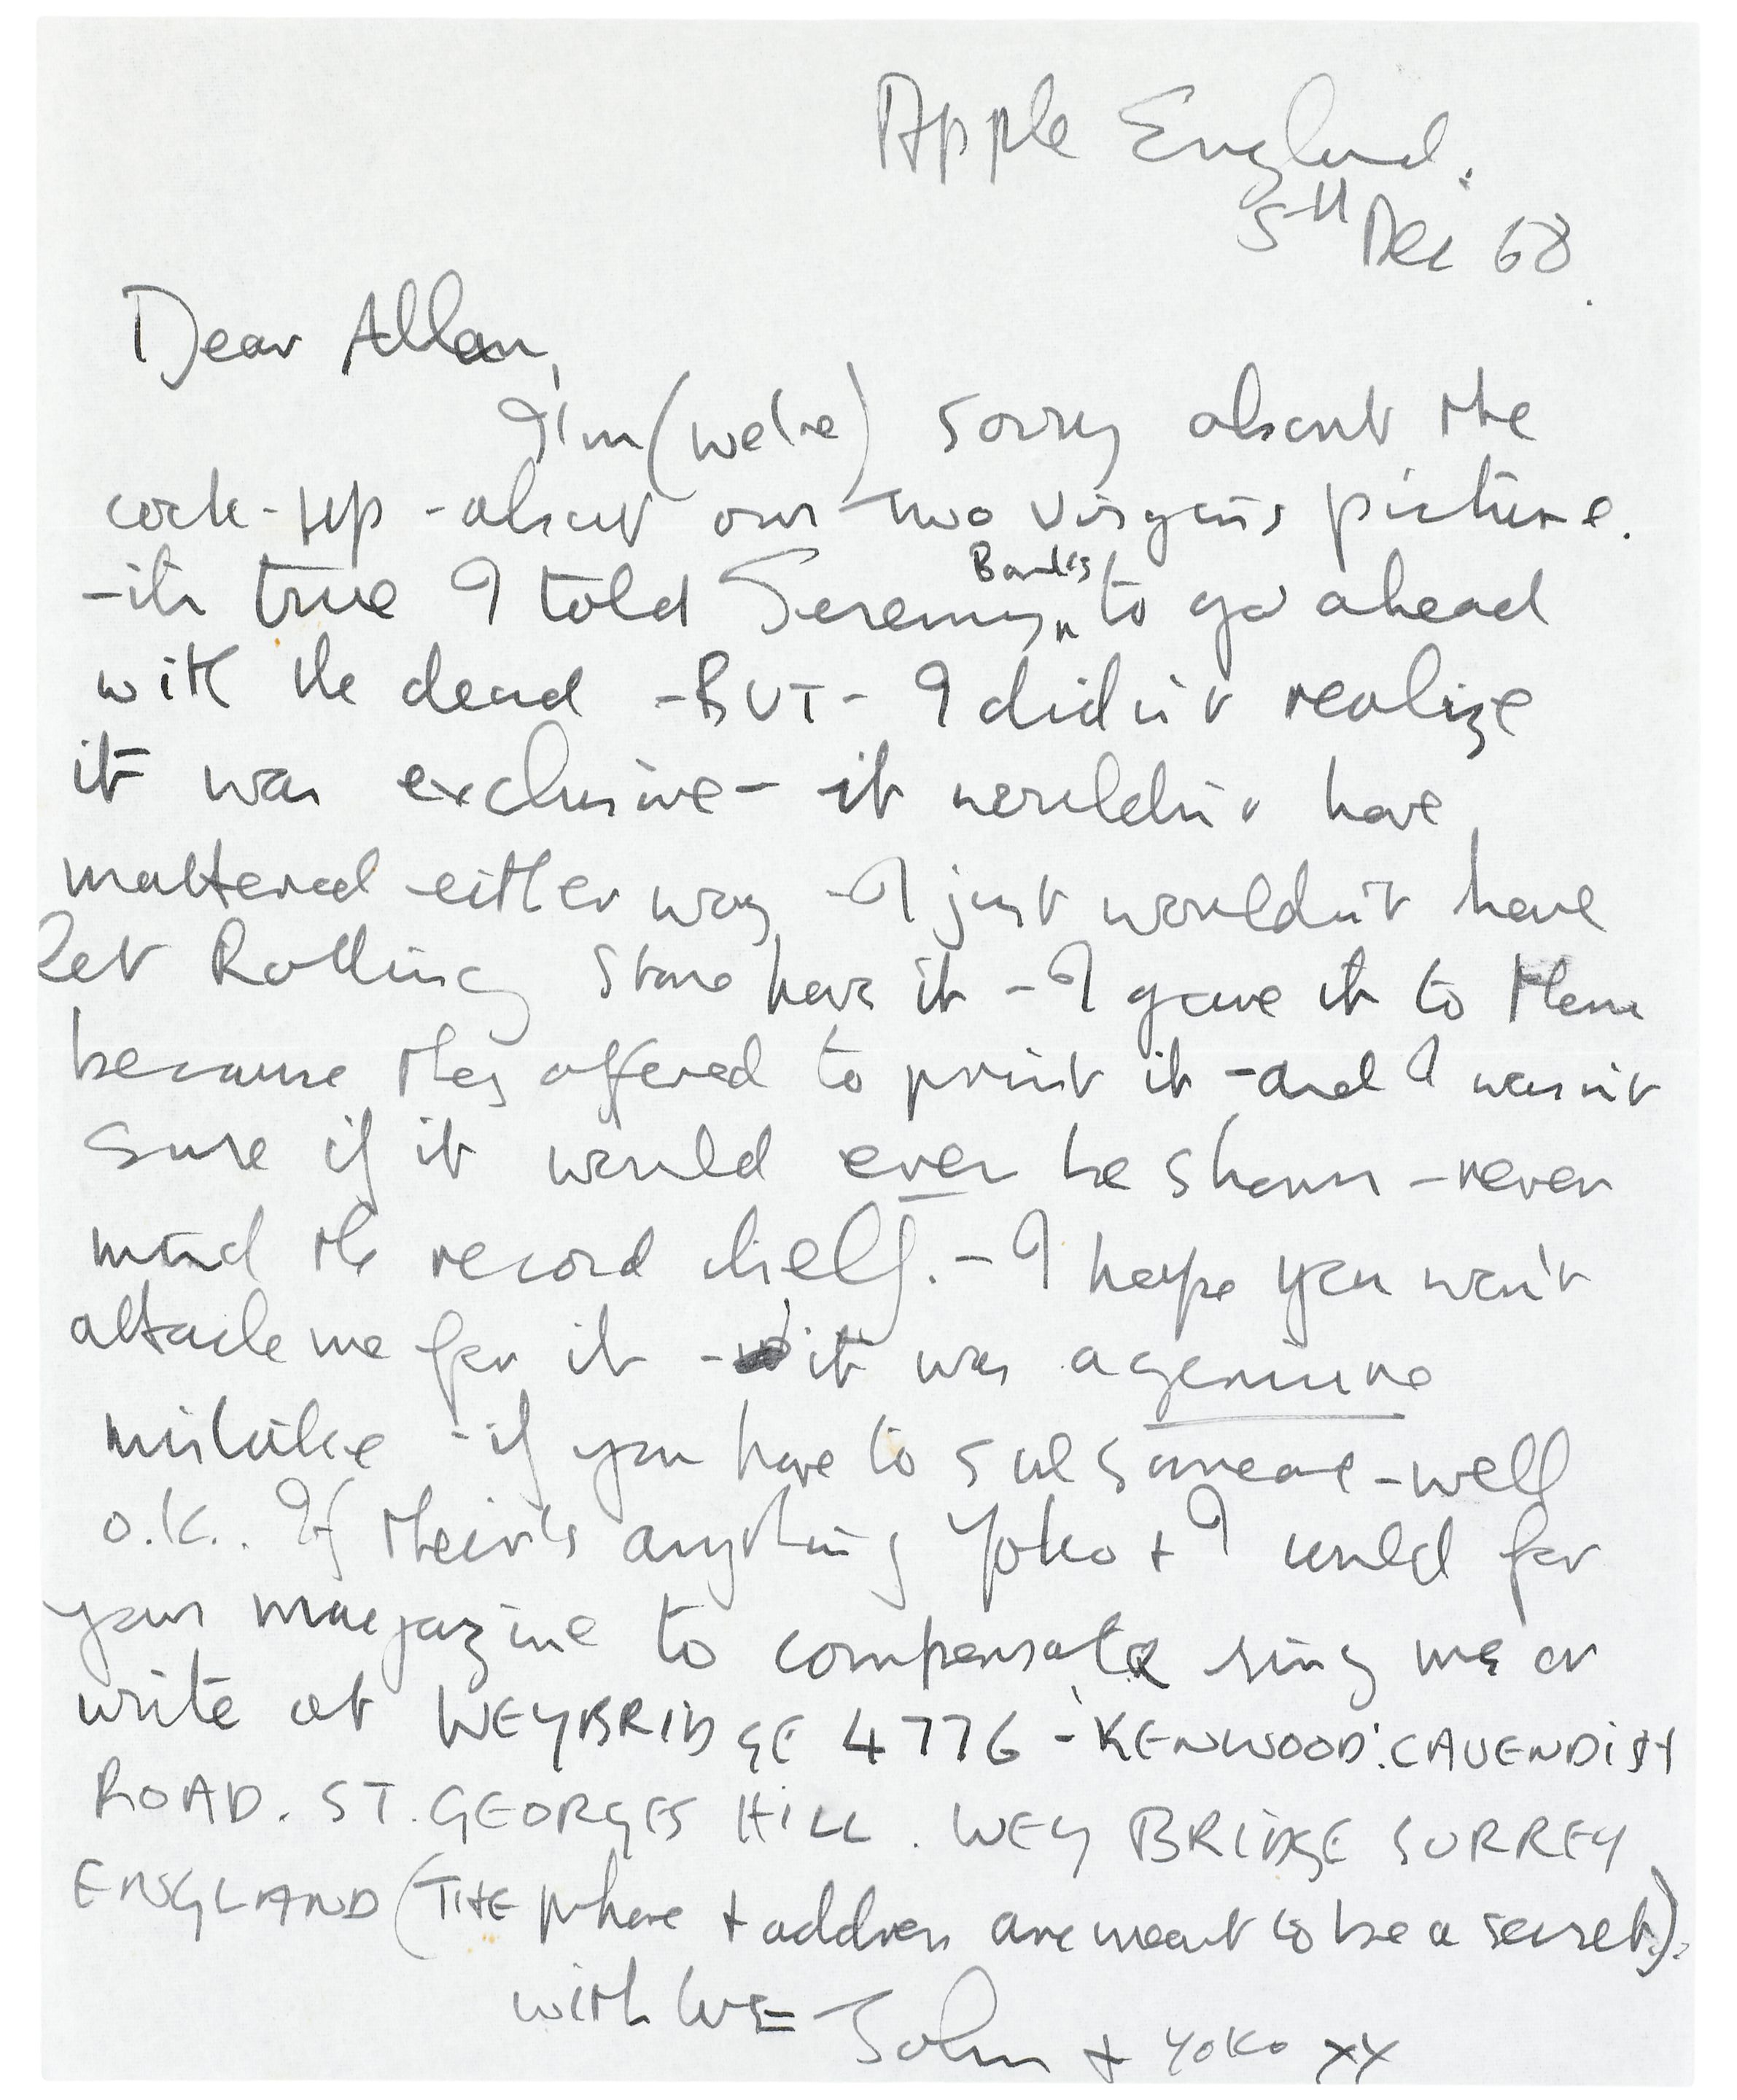 Apple England.
5th Dec 68.
Dear Allan,
I'm (we're) sorry about the
cock-up - about our two virgins picture.
- its true I told Jeremy Banks to go ahead
with the deal - BUT - I didn't realize
it was exclusive - it wouldn't have
mattered either way - I just wouldn't have
let Rolling Stone have it - I gave it to them
because they offered to print it - and I wasn't
sure if it would ever be shown - never
mind the record itself. - I hope you won't
attack me for it - it was a genuine
mistake - if you have to sue someone - well
o.k.. If their's anything Yoko + I could for
your magazine to compensate ring me or
write at WEYBRIDGE 4776 - KENWOOD. CAVENDISH
ROAD. ST. GEORGES HILL. WEYBRIDGE SURREY
ENGLAND (THE phone + address are meant to be a secret).
with love John + Yoko xx